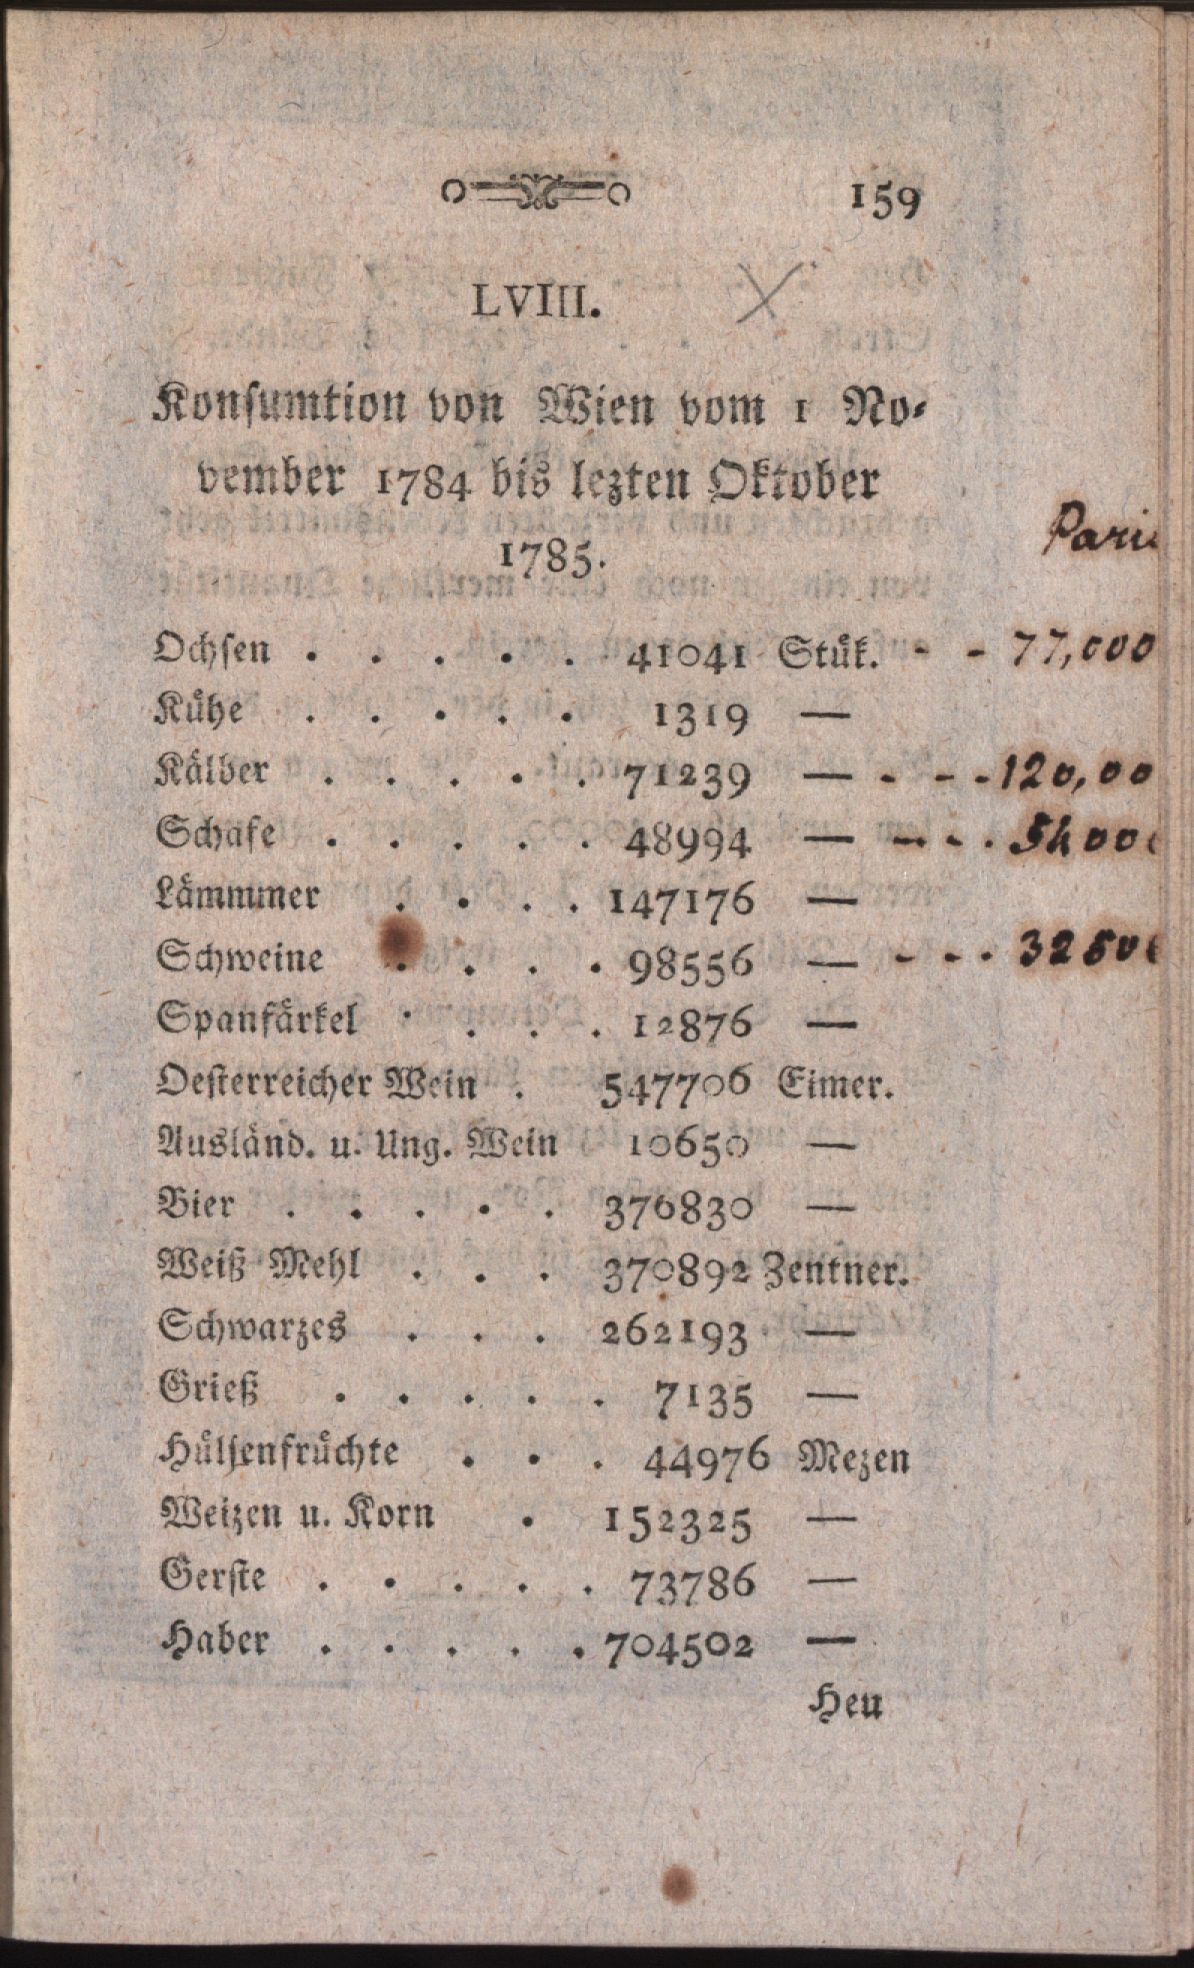 159
LVIII.
Konsumtion von Wien vom 1 No⸗
vember 1784 bis lezten Oktober
1785.
Pari
Ochsen . . . . . 41041 Stük. - - 77,000
Kühe . . . . . 1319 —
Kälber . . . . . 71239 — - - - 120,00
Schafe . . . . . 48994 — - - . 5400
Lämmmer . . . . 147176 —
Schweine . . . . 98556 — - - . 3250
Spanfärkel . . . . 12876 —
Oesterreicher Wein . 547706 Eimer.
Ausländ. u. Ung. Wein 10650 —
Bier . . . . . 376830 —
Weiß Mehl . . . 370892 Zentner.
Schwarzes . . . 262193 —
Grieß . . . . . 7135 —
Hülsenfrüchte . . . 44976 Mezen
Weizen u. Korn . 152325 —
Gerste . . . . . 73786 —
Haber . . . . . 704502 —
Heu